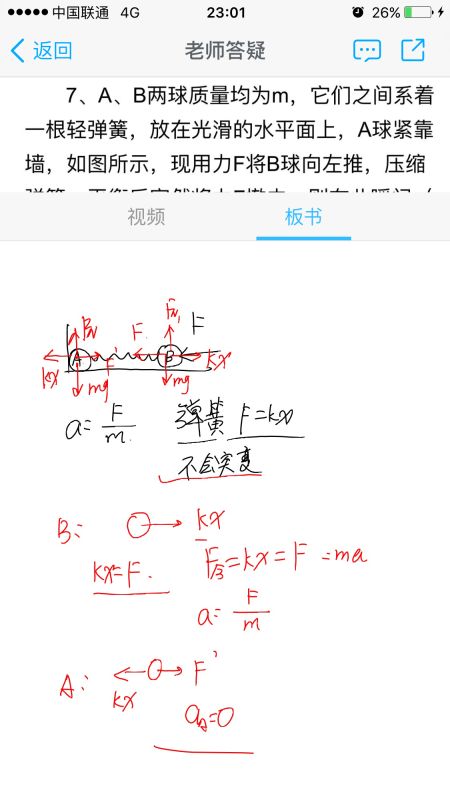 中国联通 4G 23:01 26%
返回 老师答疑
7、A、B两球质量均为m，它们之间系着
一根轻弹簧，放在光滑的水平面上，A球紧靠
墙，如图所示，现用力F将B球向左推，压缩
视频 板书
F
F kx
A F' B
kx mg mg
a=F/m 弹簧 F=kx
不会突变
B: kx
kx=F. F合=kx=F =ma
a=F/m
A: kx F'
aA=0